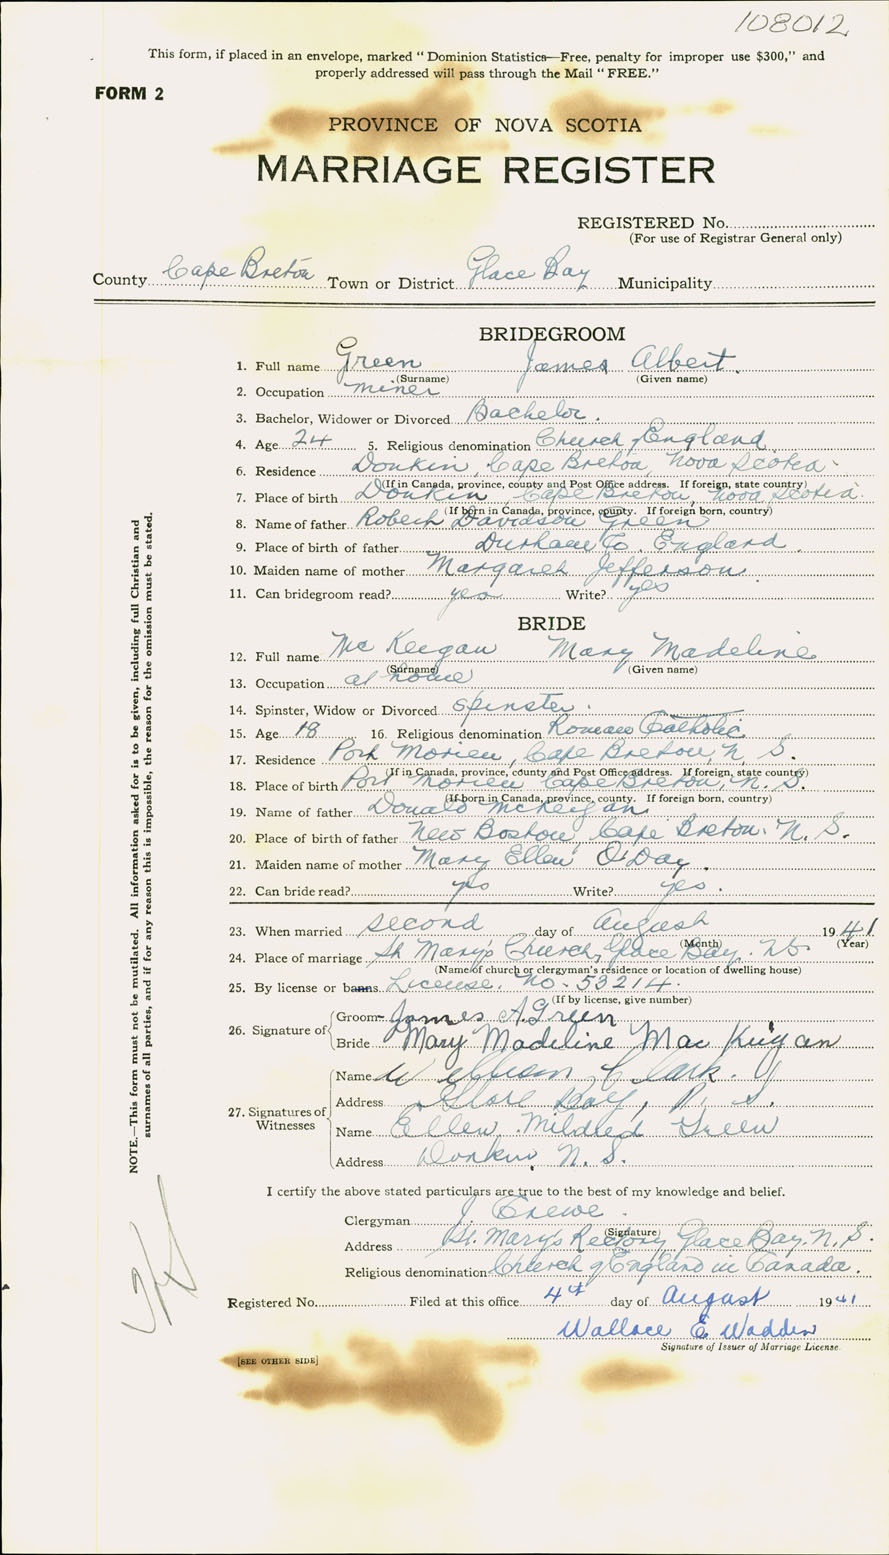 108012
This form, if placed in an envelope, marked "Dominion Statistics—Free, penalty for improper use $300," and
properly addressed will pass through the Mail "FREE."
FORM 2
PROVINCE OF NOVA SCOTIA
MARRIAGE REGISTER
REGISTERED No.
(For use of Registrar General only)
County Cape Breton Town or District Glace Bay Municipality
BRIDEGROOM
1. Full name Green James Albert
(Surname) (Given name)
2. Occupation miner
3. Bachelor, Widower or Divorced Bachelor.
4. Age 24 5. Religious denomination Church of England
6. Residence Donkin, Cape Breton, Nova Scotia
(If in Canada, province, county and Post Office address. If foreign, state country)
7. Place of birth Donkin, Cape Breton, Nova Scotia
(If born in Canada, province, county. If foreign born, country)
8. Name of father Robert Davidson Green
9. Place of birth of father Durham Co. England.
10. Maiden name of mother Margaret Jefferson
11. Can bridegroom read? yes Write? yes
BRIDE
12. Full name Mc Keegan Mary Madeline
(Surname) (Given name)
13. Occupation at home
14. Spinster, Widow or Divorced spinster.
15. Age 18 16. Religious denomination Roman Catholic
17. Residence Port Morien, Cape Breton, N. S.
(If in Canada, province, county and Post Office address. If foreign, state country)
18. Place of birth Port Morien Cape Breton, N. S.
(If born in Canada, province, county. If foreign born, country)
19. Name of father Donald McKeigan
20. Place of birth of father New Boston, Cape Breton. N. S.
21. Maiden name of mother Mary Ellen O'Day.
22. Can bride read? yes Write? yes.
23. When married second day of August 1941
(Month) (Year)
24. Place of marriage St Mary's Church, Glace Bay. NS
(Name of church or clergyman's residence or location of dwelling house)
25. By license or banns License. No. 53214.
(If by license, give number)
26. Signature of
Groom James A. Green
Bride Mary Madeline Mac Keigan
27. Signatures of Witnesses
Name William Clark.
Address Glace Bay, N. S.
Name Ellen Mildred Green
Address Donkin, N. S.
I certify the above stated particulars are true to the best of my knowledge and belief.
Clergyman J. Crewe.
(Signature)
Address St. Mary's Rectory Glace Bay. N. S.
Religious denomination Church of England in Canada.
Registered No. Filed at this office 4th day of August 1941
Wallace E Wadden
Signature of Issuer of Marriage License.
[SEE OTHER SIDE]
NOTE.—This form must not be mutilated. All information asked for is to be given, including full Christian and
surnames of all parties, and if for any reason this is impossible, the reason for the omission must be stated.